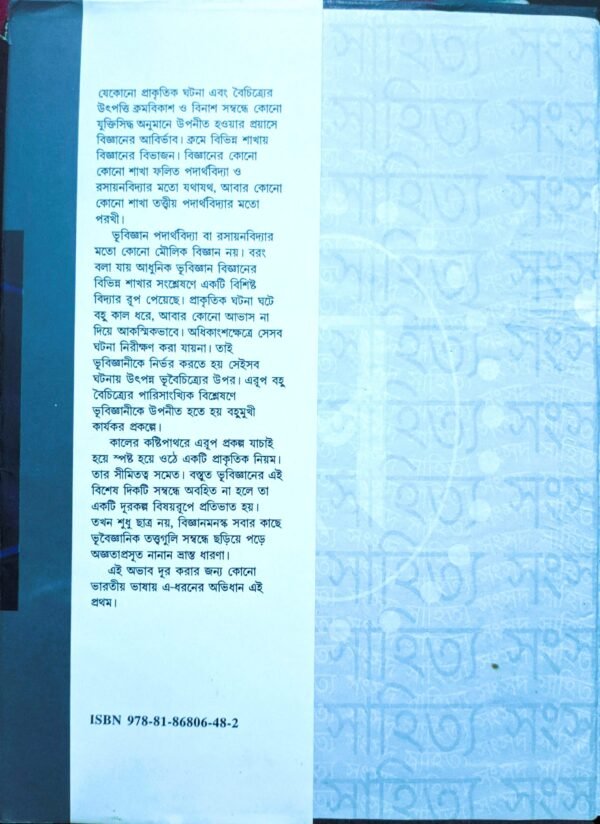 যেকোনো প্রাকৃতিক ঘটনা এবং বৈচিত্র্যের
উৎপত্তি ক্রমবিকাশ ও বিনাশ সম্বন্ধে কোনো
যুক্তিসিদ্ধ অনুমানে উপনীত হওয়ার প্রয়াসে
বিজ্ঞানের আবির্ভাব। ক্রমে বিভিন্ন শাখায়
বিজ্ঞানের বিভাজন। বিজ্ঞানের কোনো
কোনো শাখা ফলিত পদার্থবিদ্যা ও
রসায়নবিদ্যার মতো যথাযথ, আবার কোনো
কোনো শাখা তত্ত্বীয় পদার্থবিদ্যার মতো
পরখী।
ভূবিজ্ঞান পদার্থবিদ্যা বা রসায়নবিদ্যার
মতো কোনো মৌলিক বিজ্ঞান নয়। বরং
বলা যায় আধুনিক ভূবিজ্ঞান বিজ্ঞানের
বিভিন্ন শাখার সংশ্লেষণে একটি বিশিষ্ট
বিদ্যার রূপ পেয়েছে। প্রাকৃতিক ঘটনা ঘটে
বহু কাল ধরে, আবার কোনো আভাস না
দিয়ে আকস্মিকভাবে। অধিকাংশক্ষেত্রে সেসব
ঘটনা নিরীক্ষণ করা যায়না। তাই
ভূবিজ্ঞানীকে নির্ভর করতে হয় সেইসব
ঘটনায় উৎপন্ন ভূবৈচিত্র্যের উপর। এরূপ বহু
বৈচিত্র্যের পারিসাংখ্যিক বিশ্লেষণে
ভূবিজ্ঞানীকে উপনীত হতে হয় বহুমুখী
কার্যকর প্রকল্পে।
কালের কষ্টিপাথরে এরূপ প্রকল্প যাচাই
হয়ে স্পষ্ট হয়ে ওঠে একটি প্রাকৃতিক নিয়ম।
তার সীমিতত্ব সমেত। বস্তুত ভূবিজ্ঞানের এই
বিশেষ দিকটি সম্বন্ধে অবহিত না হলে তা
একটি দূরকল্প বিষয়রূপে প্রতিভাত হয়।
তখন শুধু ছাত্র নয়, বিজ্ঞানমনস্ক সবার কাছে
ভূবৈজ্ঞানিক তত্ত্বগুলি সম্বন্ধে ছড়িয়ে পড়ে
অজ্ঞতাপ্রসূত নানান ভ্রান্ত ধারণা।
এই অভাব দূর করার জন্য কোনো
ভারতীয় ভাষায় এ-ধরনের অভিধান এই
প্রথম।
ISBN 978-81-86806-48-2
সাহিত্য সংস
সাহিত্য সংস
সাহিত্য সংস
সাহিত্য সংস
সাহিত্য সংস
সাহিত্য সংস
সাহিত্য সংস
সাহিত্য সংস
সাহিত্য সংস
সাহিত্য সংস